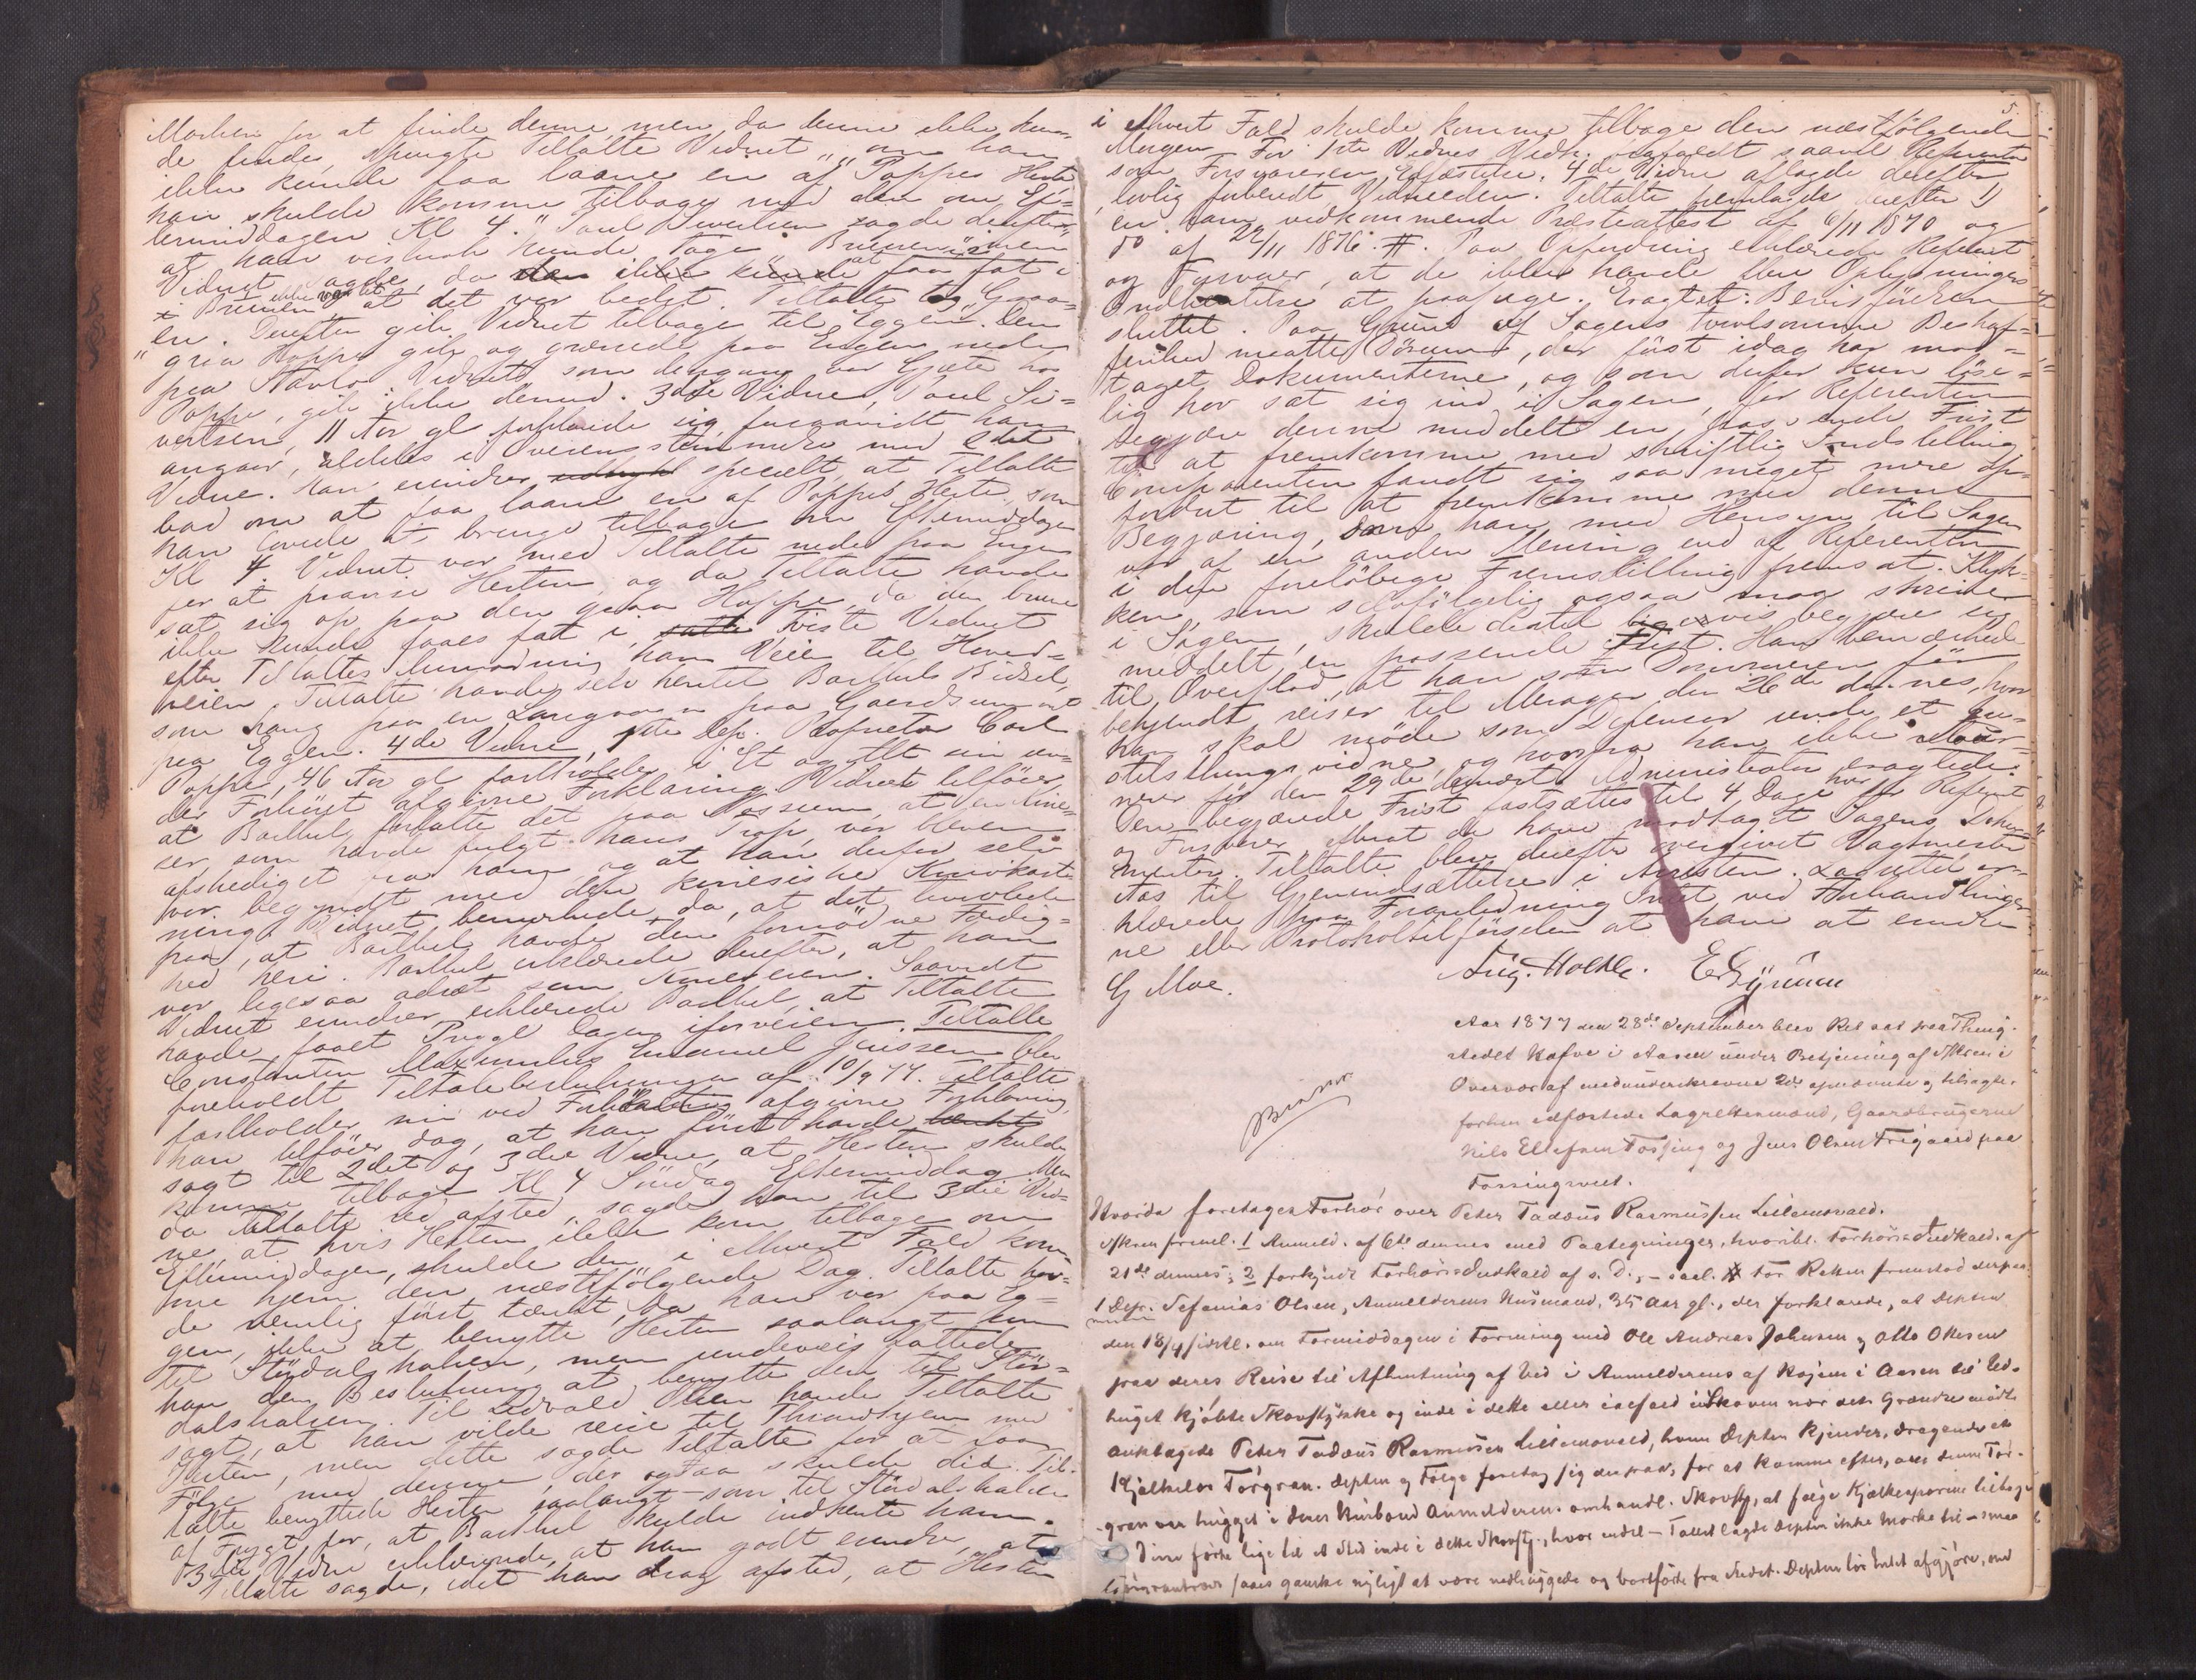 Marken for at finde denne, men da denne ikke kun-
de findes, spurgte Tiltalte Vidnet, "om han
ikke kunde faa laane en af Poppes Heste
han skulde komme tilbage med den om Ef-
termiddagen Kl 4." Paul Sivertsen sagde derefter
at han vistnok kunde tage Brunen,
Vidnet sagde, da den ikke kunde faa fat i
Brunen, at det var bedst Tiltalte tog Graa-
en. Derefter gik Vidnet tilbage til Eggen. Den
"graa Hoppe gik og græssede paa Engen neden
paa . Vidnet som dengang var Gjæter hos
Poppe, gik ikke derned. 3die Vidne, Paul Si-
vertsen, 11 Aar gl forklarede sig forsaavidt han
angaar, aldeles i Overensstemmelse med 2det
Vidne. Han erindrer specielt, at Tiltalte
bad om at faa laane en af Poppes Heste, som
han lovede at bringe tilbage om Eftermiddagen
Kl 4. Vidnet var med Tiltalte neden paa Engen
for at Hesten, og da Tiltalte havde
sat sig op paa den graa Hoppe, da den brune
ikke kunde faaes fat i, viste Vidnet
efter Tiltaltes Anmodning ham Veien til Hoved-
veien. Tiltalte havde selv hentet Barthels Bidsel,
som hang paa en Langvogn paa Gaardsrummet
paa Eggen. 4de Vidne, 1ste Dep. Carl
Poppe, 46 Aar gl fastholder i Et og Alt sin un-
der Forhöret afgivne Forklaring. Vidnet tilföier
at Barthel fortalte det paa Mossum, at en Kine-
ser, som havde fulgt hans Trop, var bleven
afskediget fra ham og at han derfor selv
var begyndt med den kinesiske Knivkast-
ning. Vidnet bemærkede da, at det tvivlede
paa, at Barthel havde den fornödne Færdig-
hed heri. Barthel erklærede derefter, at han
var ligesaa adræt som Kineseren. Saavidt
Vidnet erindrer erklærede Barthel, at Tiltalte
havde faaet Prygl Dagen iforveien. Tiltalte
Constantin Maximilius Emanuel Jenssen blev
foreholdt Tiltalebeslutningen af 10/9 77. Tiltalte
fastholder sin ved Forhöret afgivne Forklaring,
han tilföier dog, at han först havde
sagt til 2det og 3die Vidne, at Hesten skulde
komme tilbage Kl 4 Söndag Eftermiddag. Men
da Tiltalte red afsted, sagde han til 3die Vid-
ne, at hvis Hesten ikke kom tilbage om
Eftermiddagen, skulde den i ethvert Fald kom-
me hjem den næstfölgende Dag. Tiltalte hav-
de nemlig först tænkt, da han var paa Eg-
gen, ikke at benytte Hesten saalangt som
til Stördalshalsen, men underveis fattede
han den Beslutning at benytte den til Stör-
dalshalsen. Til Edvald Olsen havde Tiltalte
sagt, at han vilde reise til Throndhjem med
Hesten, men dette sagde Tiltalte for at faa
Fölge med denne, der ogsaa skulde did. Til-
talte benyttede Hesten saalangt som til Stördalshalsen
af Frygt for, at Barthel skulde indhente ham.
3die Vidne erklærede, at han godt erindrer, at
Tiltalte sagde, idet han drog afsted, at Hesten
5.
i ethvert Fald skulde komme tilbage den næstfölgende
Morgen. For 1ste Vidnes Vedk. frafaldt saavel Referenten
som Forsvareren Edfæstelse. 4de Vidne aflagde derefter
lovlig forberedt Vidneeden. Tiltalte fremlagde derefter 1)
en ham vedkommende Præsteattest af 6/11 1870 og
do af 22/11 1876. #. Paa Opfordring erklærede Referent
og Forsvarer, at de ikke havde flere Oplysningers
Indhentelse at paasege. Eragtet: Bevisförelsen
sluttet. Paa Grund af Sagens tvivlsomme Beskaf-
fenhed maatte , der först idag har mod-
taget Dokumenterne, og som derfor kun löse-
lig har sat sig ind i Sagen, for Referenten
begjære denne meddelt en passende Frist
til at fremkomme med skriftlig Indstilling.
Comparenten fandt sig saa meget mere op-
fordret til at fremkomme med denne
Begjæring, som han med Hensyn til Sagen
var af en anden Mening end af Referenten
i den foreløbige Fremstilling fremsat.
som selvfölgelig ogsaa maa skrive
i Sagen, skulde dertil ligervis begjære sig
meddelt en passende Frist. Han bemærkede
til Overflod, at han som Dommeren
bekjendt reiser til Meraker den 26de dennes, hvor
han skal möde som Defensor under et Gjen-
stilsthingsvidne, og hvorfra han ikke retour-
nerer för den 29de dennes. Administrator eragtede:
Den begjærede Frist fastsættes til 4 Dage for Referent
og Forsvarer, efterat de have modtaget Sagens Doku-
menter. Tiltalte blev derefter overgivet Vagtmester
Aas til Gjenindsættelse i Arresten. Lagretten er-
klærede paa Foranledning Intet ved Forhandlinger-
ne eller Protokoltilførselen at have at erindre
G Moe. Aug. Holtke.
Aar 1877 den 28de September blev Ret sat paa Thing-
stedet Hafve i Aasen under Betjening af Skr. i
Overvær af medunderskrevne 2de opnævnte og tilsagte,
forhen edfæstede Lagrettesmænd, Gaardbrugerne
Nils Ellefsen Fossing og Jens Olsen Trögaard paa
Fossingsveet.
Hvorda foretages Forhör over Peter Tadæus Rasmussen Lillemovald.
Skr. freml. 1 Anmeld. af 6te dennes med Paategninger, hvoribl. Forhörs-Indkald. af
21de dennes; 2 forkyndt Forhörs-Indkald af s. D., - saal. # For Retten fremstod derpaa
1 Depr. Sefanias Olsen, Anmelderens Husmand, 35 Aar gl., der forklarede, at Depten
den 18/4 sidstl. om Formiddagen i Forening med Ole Andreas Johnsen og Otto Olsen
paa deres Reise til Afhentning af Ved i Anmelderens af Kojem i Aasen til Ved-
huget kjøbte Skovstykke og inde i dette eller iafald i Skoven nær dets Grændse mödte
anklagede Peter Tadæus Rasmussen Lillemovald, hvem Depten kjender, dragende en
Kjælkelas Torgran. Depten og Følge foretog sig derpaa, for at komme efter, om denne Tor-
gran var hugget i deres Husbond Anmelderens omhandl. Skovst., at følge Kjælkesporene tilbage
Disse førte lige til et Sted inde i dette Skovst., hvor endel - Tallet lagde Depten ikke Mærke til - smaa
saaes ganske nyligt at være nedhuggede og bortførte fra Stedet. Depten tör Intet afgjöre, om